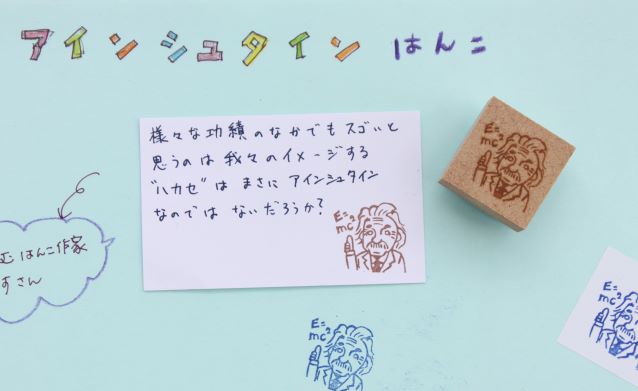 アインシュタイン はんこ
様々な功績のなかでもスゴいと
思うのは我々のイメージする
"ハカセ"はまさにアインシュタイン
なのではないだろうか?
E=
mc²
E=
mc²
む はんこ作家
すさん
E=
mc²
E=
mc²